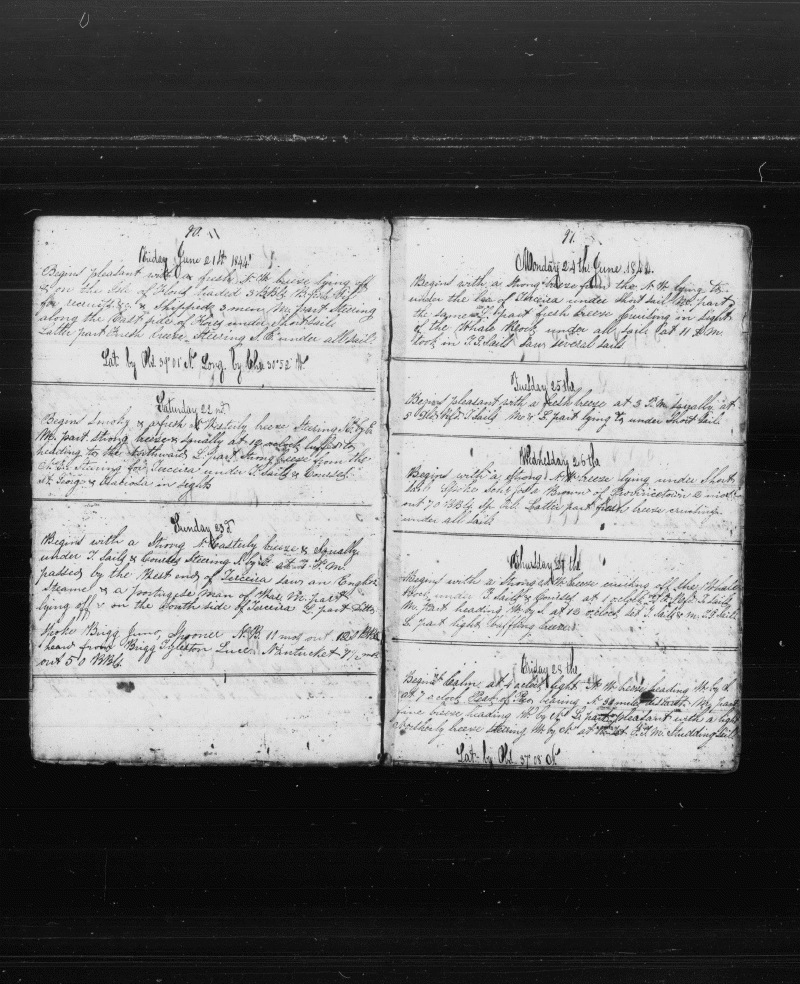 90.
Friday June 21st 1844
Begins pleasant with a fresh N. W. breeze lying off
& on the Isle of landed 3 BBls B. fish Oil
for recruits &c. & Shipped 3 men M. part Steering
along the East side of under Short Sail
Latter part Fresh breeze Steering S. E. under all sail.
Lat by Obd 39"01 N. Long. by Chr 30"52 W.
Saturday 22nd
Begins Smoky & a fresh Westerly breeze Steering by E.
M. part strong breeze & Squally at 12 o,clock luffed to
heading to the Northward L. part Strong breeze from the
Steering for Terceira under T. Sails & Courses
St. George & in sight
Sunday 23d
Begins with a Strong N. Easterly breeze & Squally
under T. Sails & Courses Steering S. by E. at 7 P. M.
passed by the West end of Terceira saw an English
Steamer & a portugese Man of War M. part
lying off & on the South side of Terceira L. part Ditto
Spoke Brigg Juno, Spooner N. B. 11 mos out 120 BBls
heard from Brigg Luce, Nantucket
out 50 BBls
91.
Monday 24th June 1844.
Begins with a strong breeze from the N. W. lying to
under the Lea of Terceira under short sail M. part
the same L. part fresh breeze cruising in sight
of the Whale Rock under all sail at 11 A. M.
took in T. G. Sails saw several sails
Tuesday 25th
Begins pleasant with a fresh breeze at 3 P. M. Squally at
5 T. Sails M. & L. part lying to under Short Sail
Wednesday 26th
Begins with a strong N. W. breeze lying under Short
Sail Spoke Brown of Provincetown 2 mos
out 70 BBls Sp. Oil. Latter part fresh breeze cruising
under all sail
Thursday 27th
Begins with a Strong N. W. breeze cruising off the Whale
Rock under T. Sails & Courses at 1 oclock T. Sails
M. Part heading W. by S. at 12 oclock set J. Sails & M. T. G. Sails
L. part light baffling breezes
Friday 28th
Begins Calm at 4 oclock light N. W. breeze heading W. by S.
at 7 oclock Peak of Pico bearing N. 30 miles distant M. part
fine breeze heading W. by L. part pleasant with a light
Southerly breeze Steering W. by N. at set F. T. M. Studding sails
Lat by Obd 37"08 N